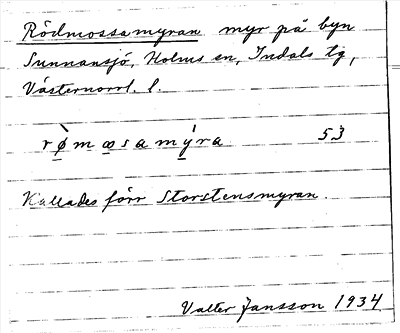 Rödmossamyran myr på byn
Sunnansjö, Holms sn, Indals tg,
Västernorrl. l.
rø̀mɷsamýra 53
Kallades förr Storstensmyran.
Valter Jansson 1934